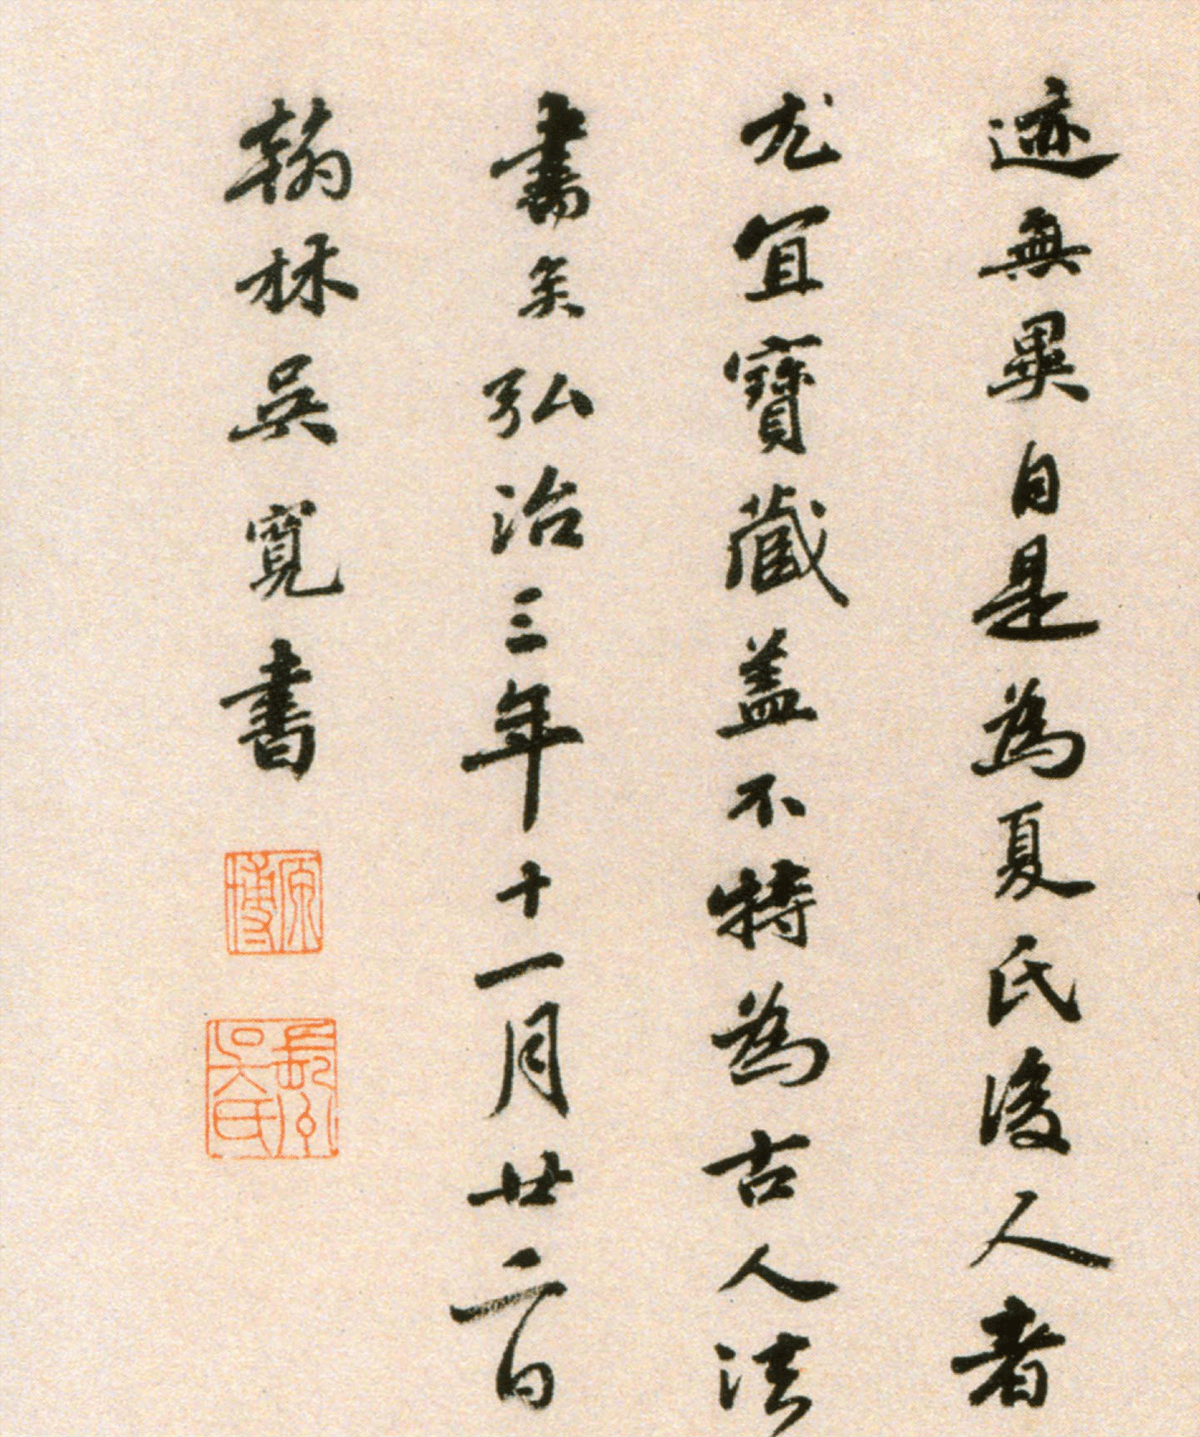 迹無異自是為夏氏後人者
尤宜寶藏盖不特為古人法
書矣弘治三年十一月廿二日
翰林吳寬書
原博
長洲吳氏